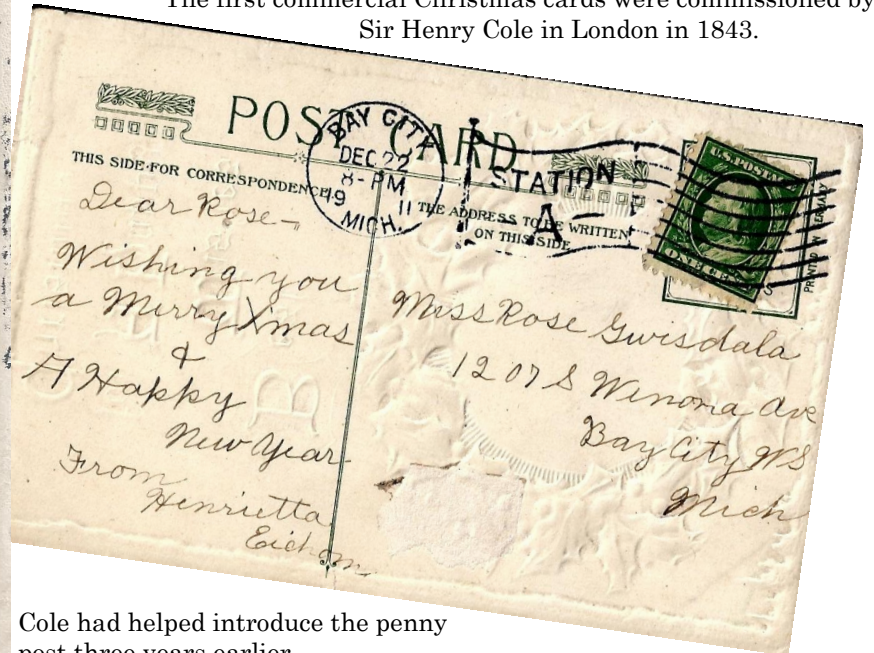 The first commercial Christmas cards were commissioned by
Sir Henry Cole in London in 1843.
POST CARD
THIS SIDE FOR CORRESPONDENCE
THE ADDRESS TO BE WRITTEN
ON THIS SIDE
BAY CITY
DEC 22
8-PM
19 11
MICH.
STATION
A
U.S. POSTAGE
PRINTED IN GERMANY
Dear Rose-
Wishing you
a Merry Xmas
&
A Happy
New Year
From
Henrietta
Miss Rose Gwisdala
1207 S Winona Ave
Bay City WS
Mich
Cole had helped introduce the penny
post three years earlier